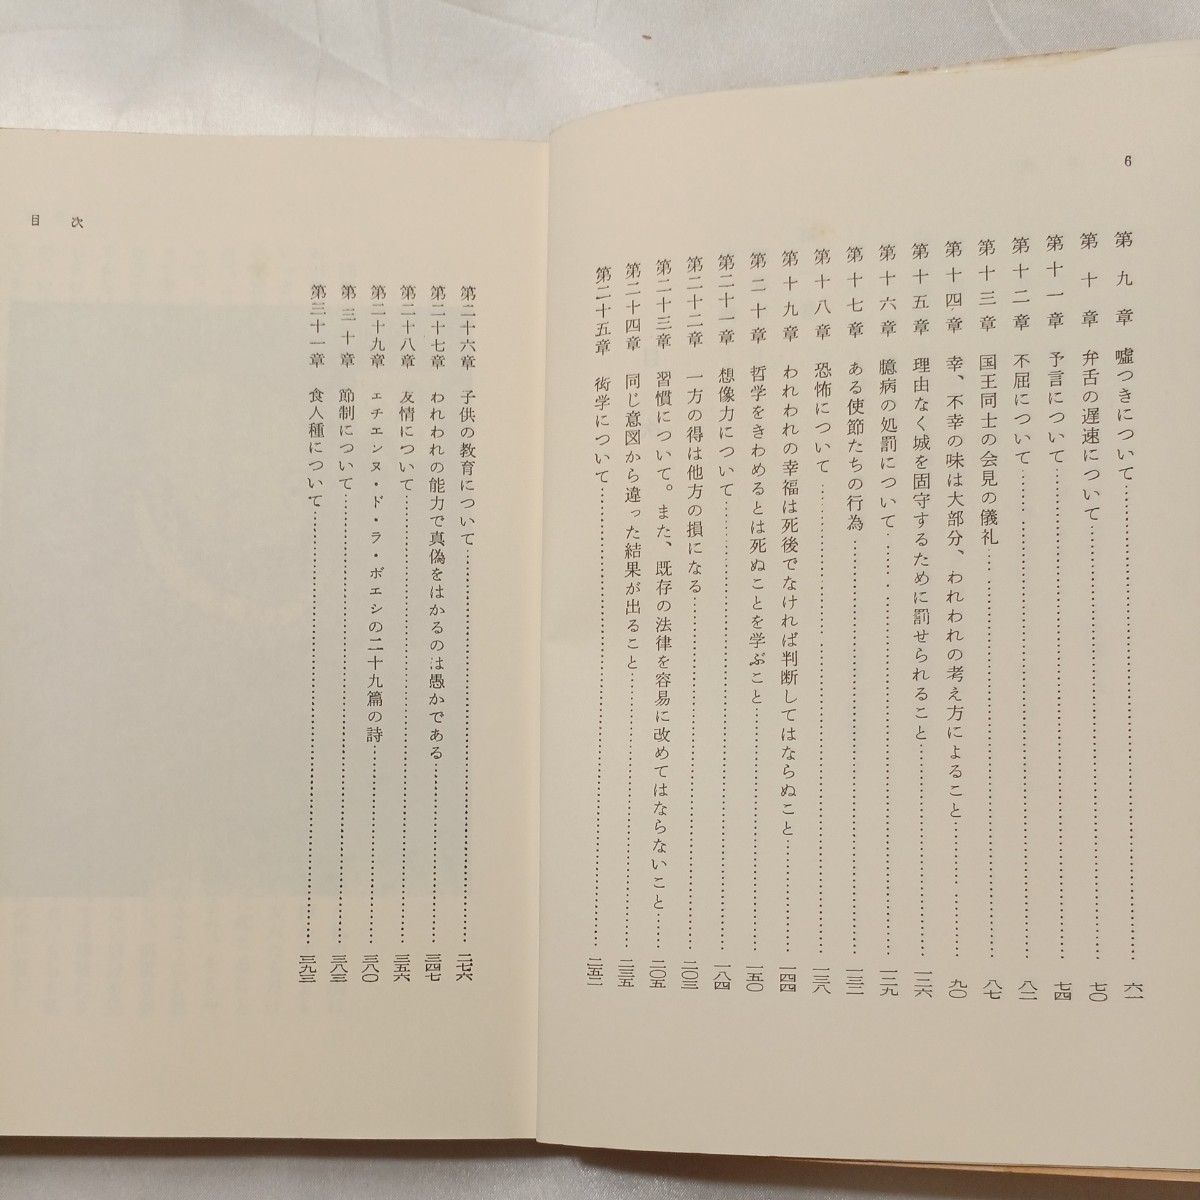 6
第九章 嘘つきについて……六一
第十章 弁舌の遅速について……七〇
第十一章 予言について……七四
第十二章 不屈について……八二
第十三章 国王同士の会見の儀礼……八七
第十四章 幸、不幸の味は大部分、われわれの考え方によること……九〇
第十五章 理由なく城を固守するために罰せられること……一二六
第十六章 臆病の処罰について……一二九
第十七章 ある使節たちの行為……一三二
第十八章 恐怖について……一三八
第十九章 われわれの幸福は死後でなければ判断してはならぬこと……一四四
第二十章 哲学をきわめるとは死ぬことを学ぶこと……一五〇
第二十一章 想像力について……一八四
第二十二章 一方の得は他方の損になる……二〇三
第二十三章 習慣について。また、既存の法律を容易に改めてはならないこと……二〇五
第二十四章 同じ意図から違った結果が出ること……二三五
第二十五章 衒学について……二五二
第二十六章 子供の教育について……二七六
第二十七章 われわれの能力で真偽をはかるのは愚かである……三四七
第二十八章 友情について……三五六
第二十九章 エチエンヌ・ド・ラ・ボエシの二十九篇の詩……三八〇
第三十章 節制について……三八三
第三十一章 食人種について……三九三
目次